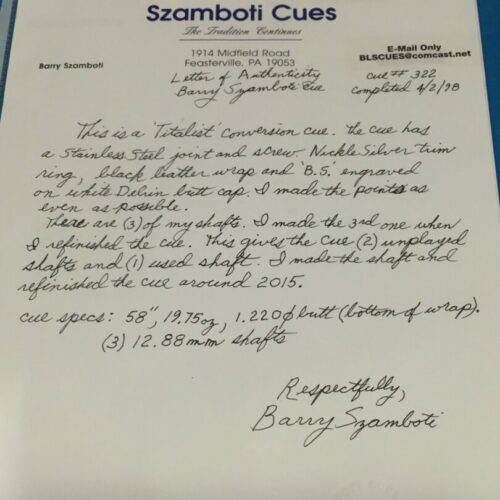 Szamboti Cues
The Tradition Continues
1914 Midfield Road
Feasterville, PA 19053
E-Mail Only
BLSCUES@comcast.net
Barry Szamboti
Letter of Authenticity
Barry Szamboti Cue
Cue ## 322
Completed 4/2/98
This is a 'Titalist' conversion cue. The cue has
a Stainless Steel joint and screw. Nickle Silver trim
ring, black leather wrap and 'B.S.' engraved
on white Delrin butt cap. I made the points as
even as possible.
There are (3) of my shafts. I made the 3rd one when
I refinished the cue. This gives the Cue (2) unplayed
shafts and (1) used shaft. I made the shaft and
refinished the cue around 2015.
cue specs: 58", 19.75oz, 1.220φ butt (bottom of wrap).
(3) 12.88mm shafts
Respectfully,
Barry Szamboti